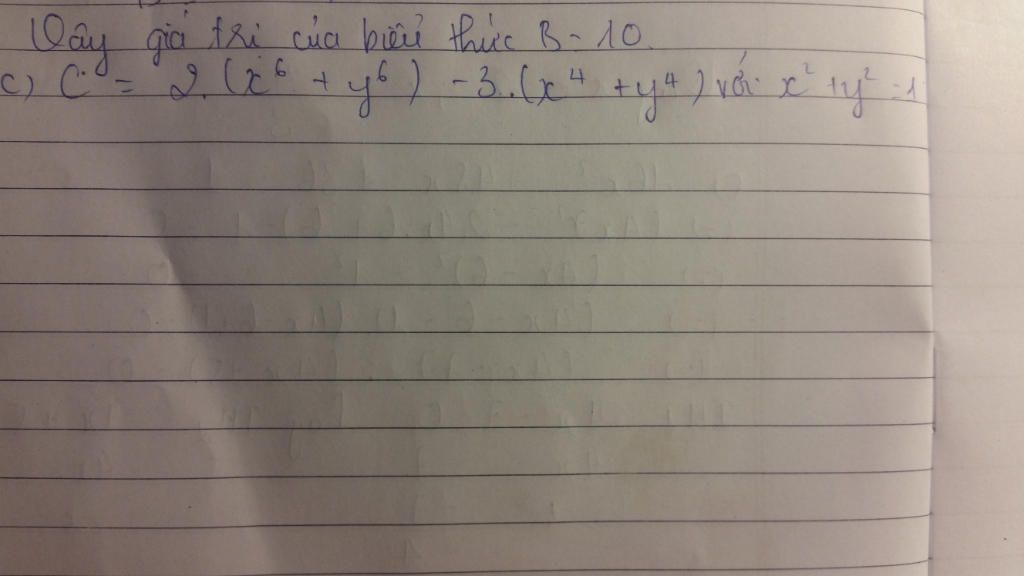 Vậy giá trị của biểu thức B = 10.
c) C = 2.(x⁶ + y⁶) - 3.(x⁴ + y⁴) với x² + y² = 1